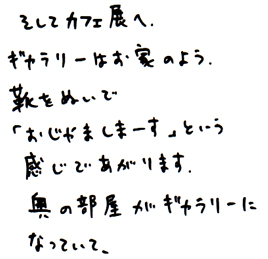 そしてカフェ展へ.
ギャラリーはお家のよう.
靴をぬいで
「おじゃましまーす」という
感じであがります.
奥の部屋がギャラリーに
なっていて、